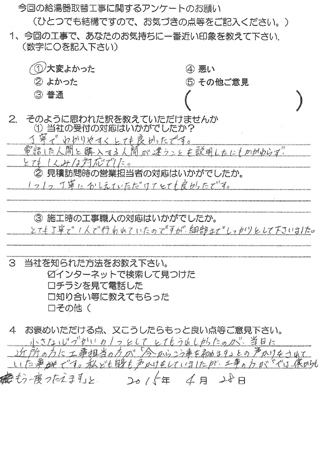 今回の給湯器取替工事に関するアンケートのお願い
(ひとつでも結構ですので、お気づきの点等をご記入ください。)
1、今回の工事で、あなたのお気持ちに一番近い印象を教えて下さい。
(数字に○を記入下さい)
①大変よかった ④悪い
②よかった ⑤その他ご意見
③普通 ( )
2、そのように思われた訳を教えていただけませんか
①当社の受付の対応はいかがでしたか?
丁寧でわかりやすくとても良かったです。
電話した人間と購入する人間が違うことを説明したにもかかわらず、
とても な対応でした。
②見積訪問時の営業担当者の対応はいかがでしたか。
1つ1つ丁寧におしえていただけてとても良かったです。
③施工時の工事職人の対応はいかがでしたか。
とても丁寧で1人で行われていたのですが、細部までしっかりとして下さいました。
3 当社を知られた方法をお教え下さい。
☑インターネットで検索して見つけた
□チラシを見て電話した
□知り合い等に教えてもらった
□その他(
4 お褒めいただける点、又こうしたらもっと良い点等ご意見下さい。
小さな心づかいの1つとしてとてもうれしかったのが、当日に
近所の方に工事担当の方が「今から工事を始めます」との声かけをされて
いた事です。私どもも声かけをしていましたが、工事の方が「では、僕からも
もう一度つたえます」と 2015年 4月 28日